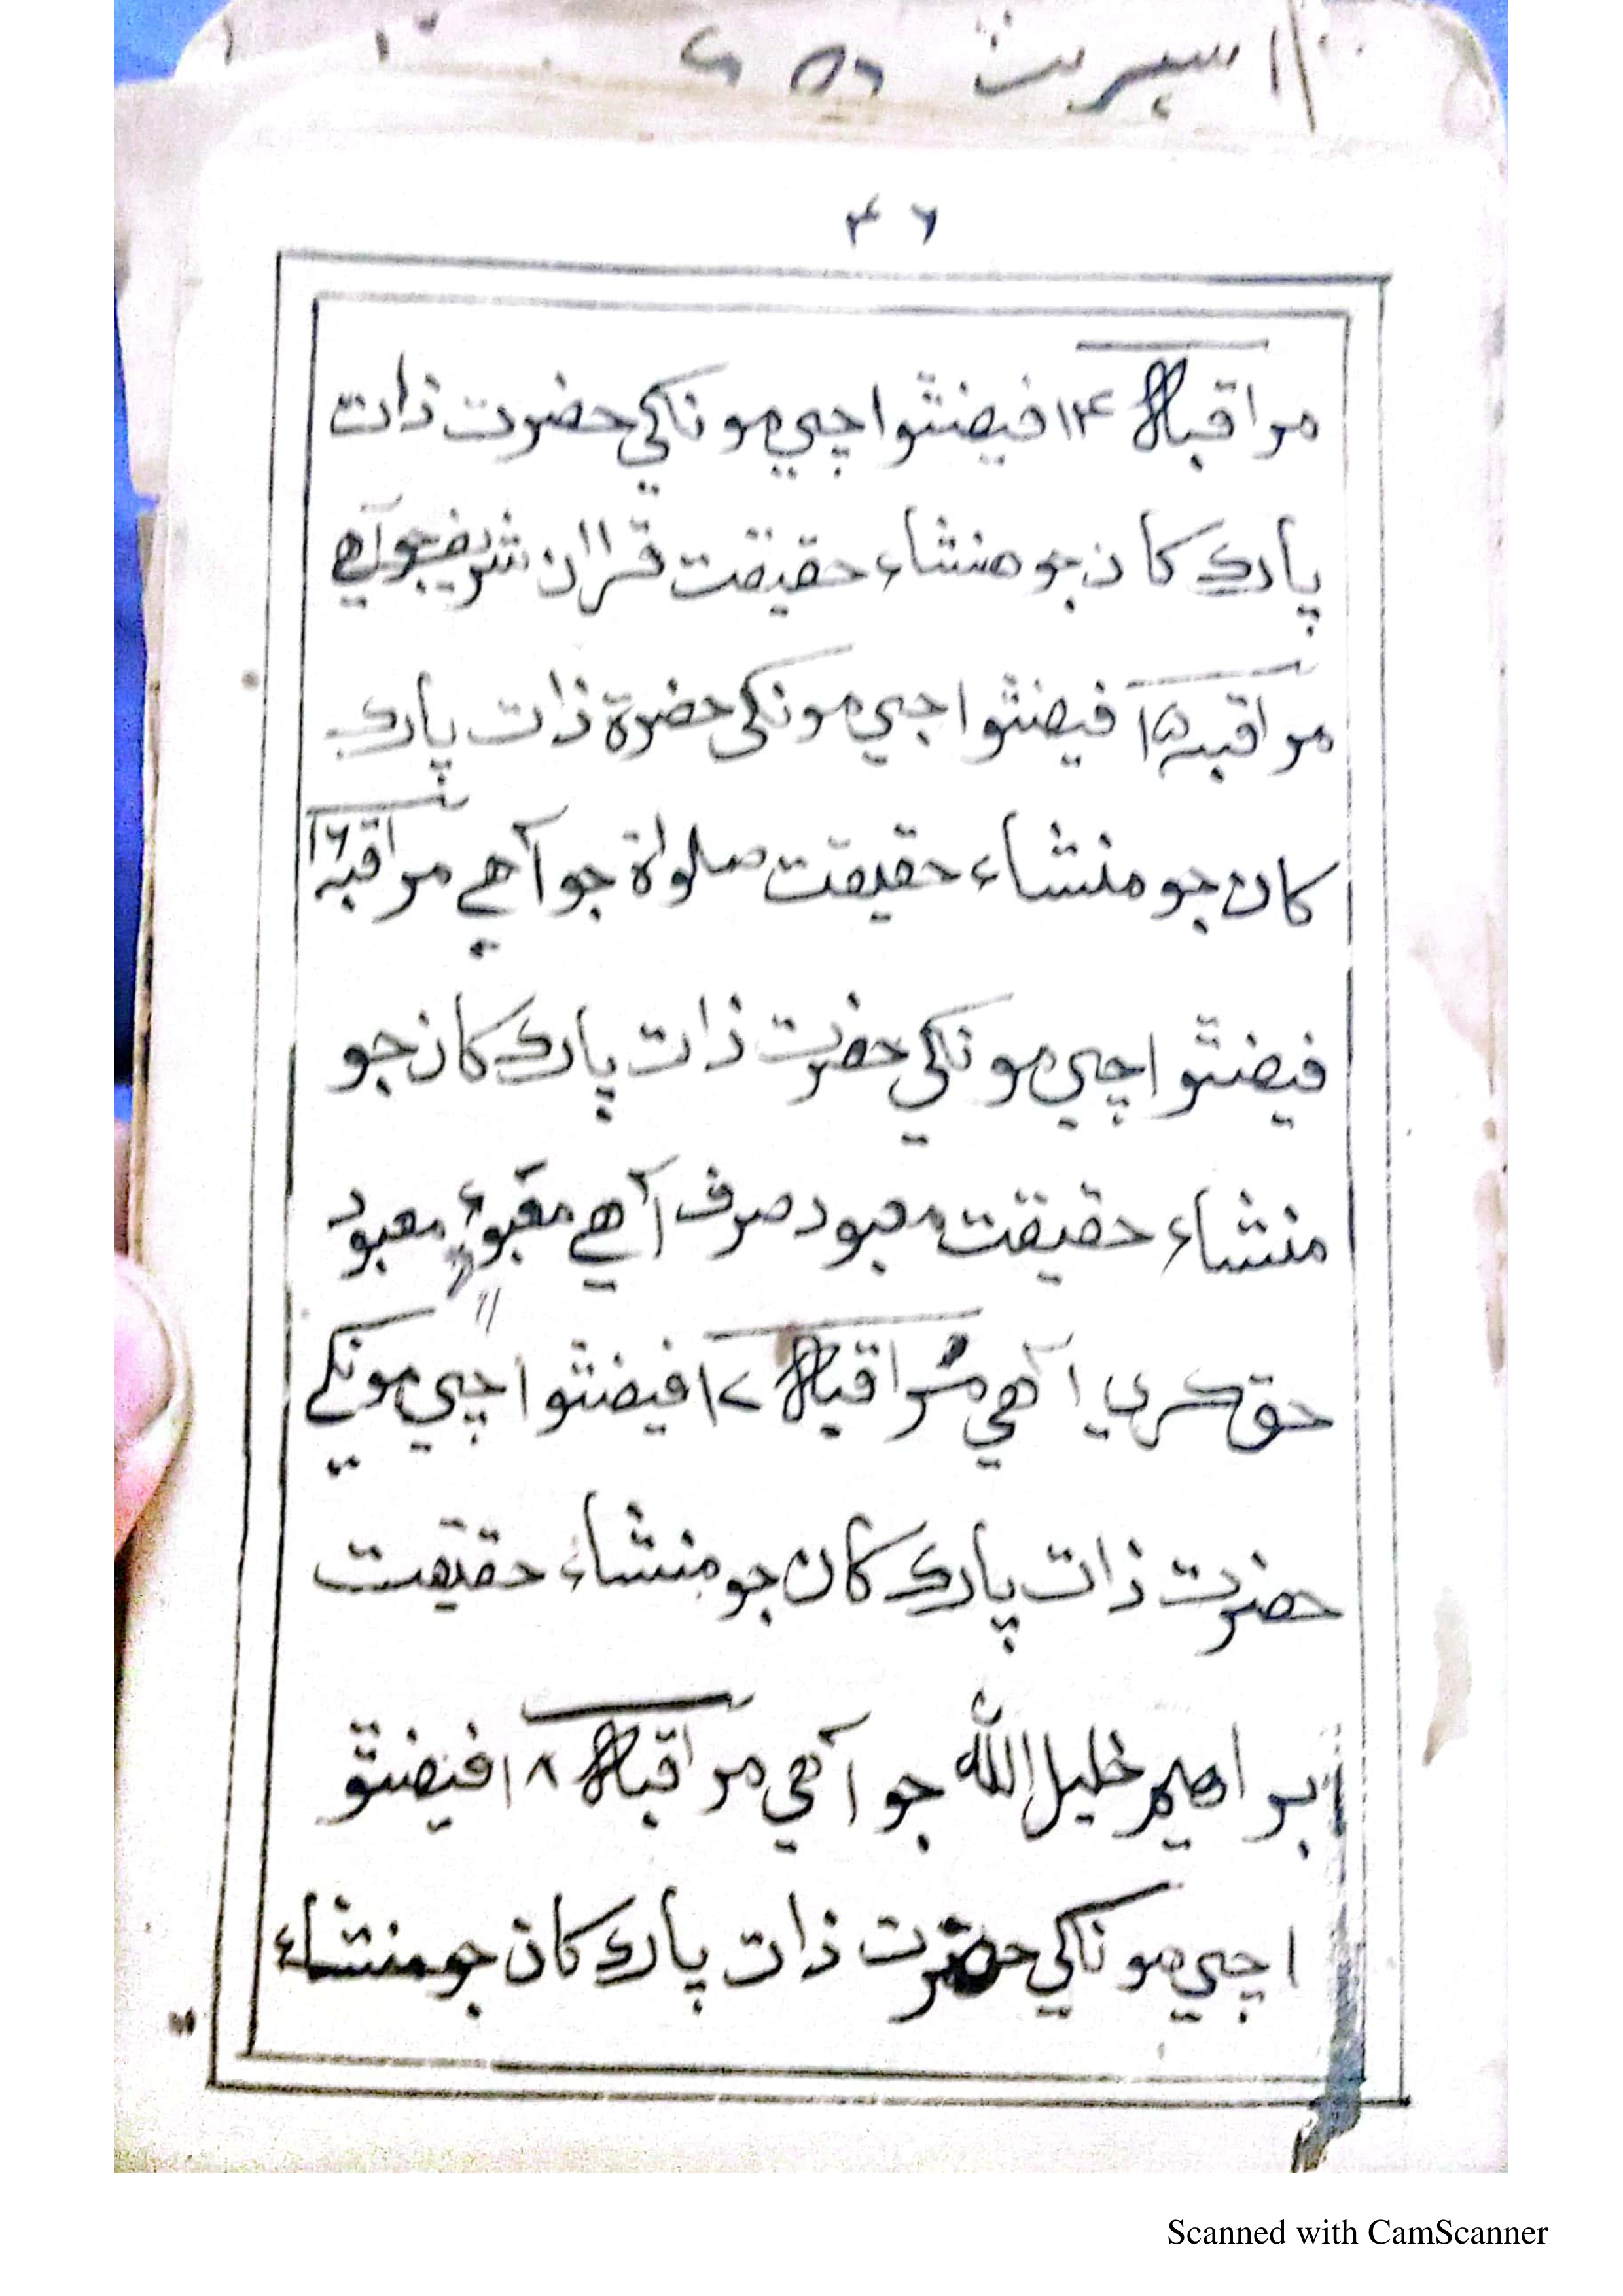 ۴۶
مراقبہ ۱۴ فيضٿو اچي مونکي حضرت ذات
پاڪ کان جو منشاء حقيقت قراان شريفجو آهي
مراقبہ ۱۵ فيضٿو اچي مونکی حضرة ذات پاڪ
کان جو منشاء حقيقت صلواة جو آهي مراقبہ ۱۶
فيضٿو اچي مونکي حضرت ذات پاڪ کان جو
منشاء حقيقت معبود صرف آهي معبود
حق ڪري آهي مراقبہ ۱۷ فيضٿو اچي مونکي
حضرت ذات پاڪ کان جو منشاء حقيقت
ابراهيم خليل الله جو آهي مراقبہ ۱۸ فيضٿو
اچي مونکي حضرت ذات پاڪ کان جو منشاء
Scanned with CamScanner